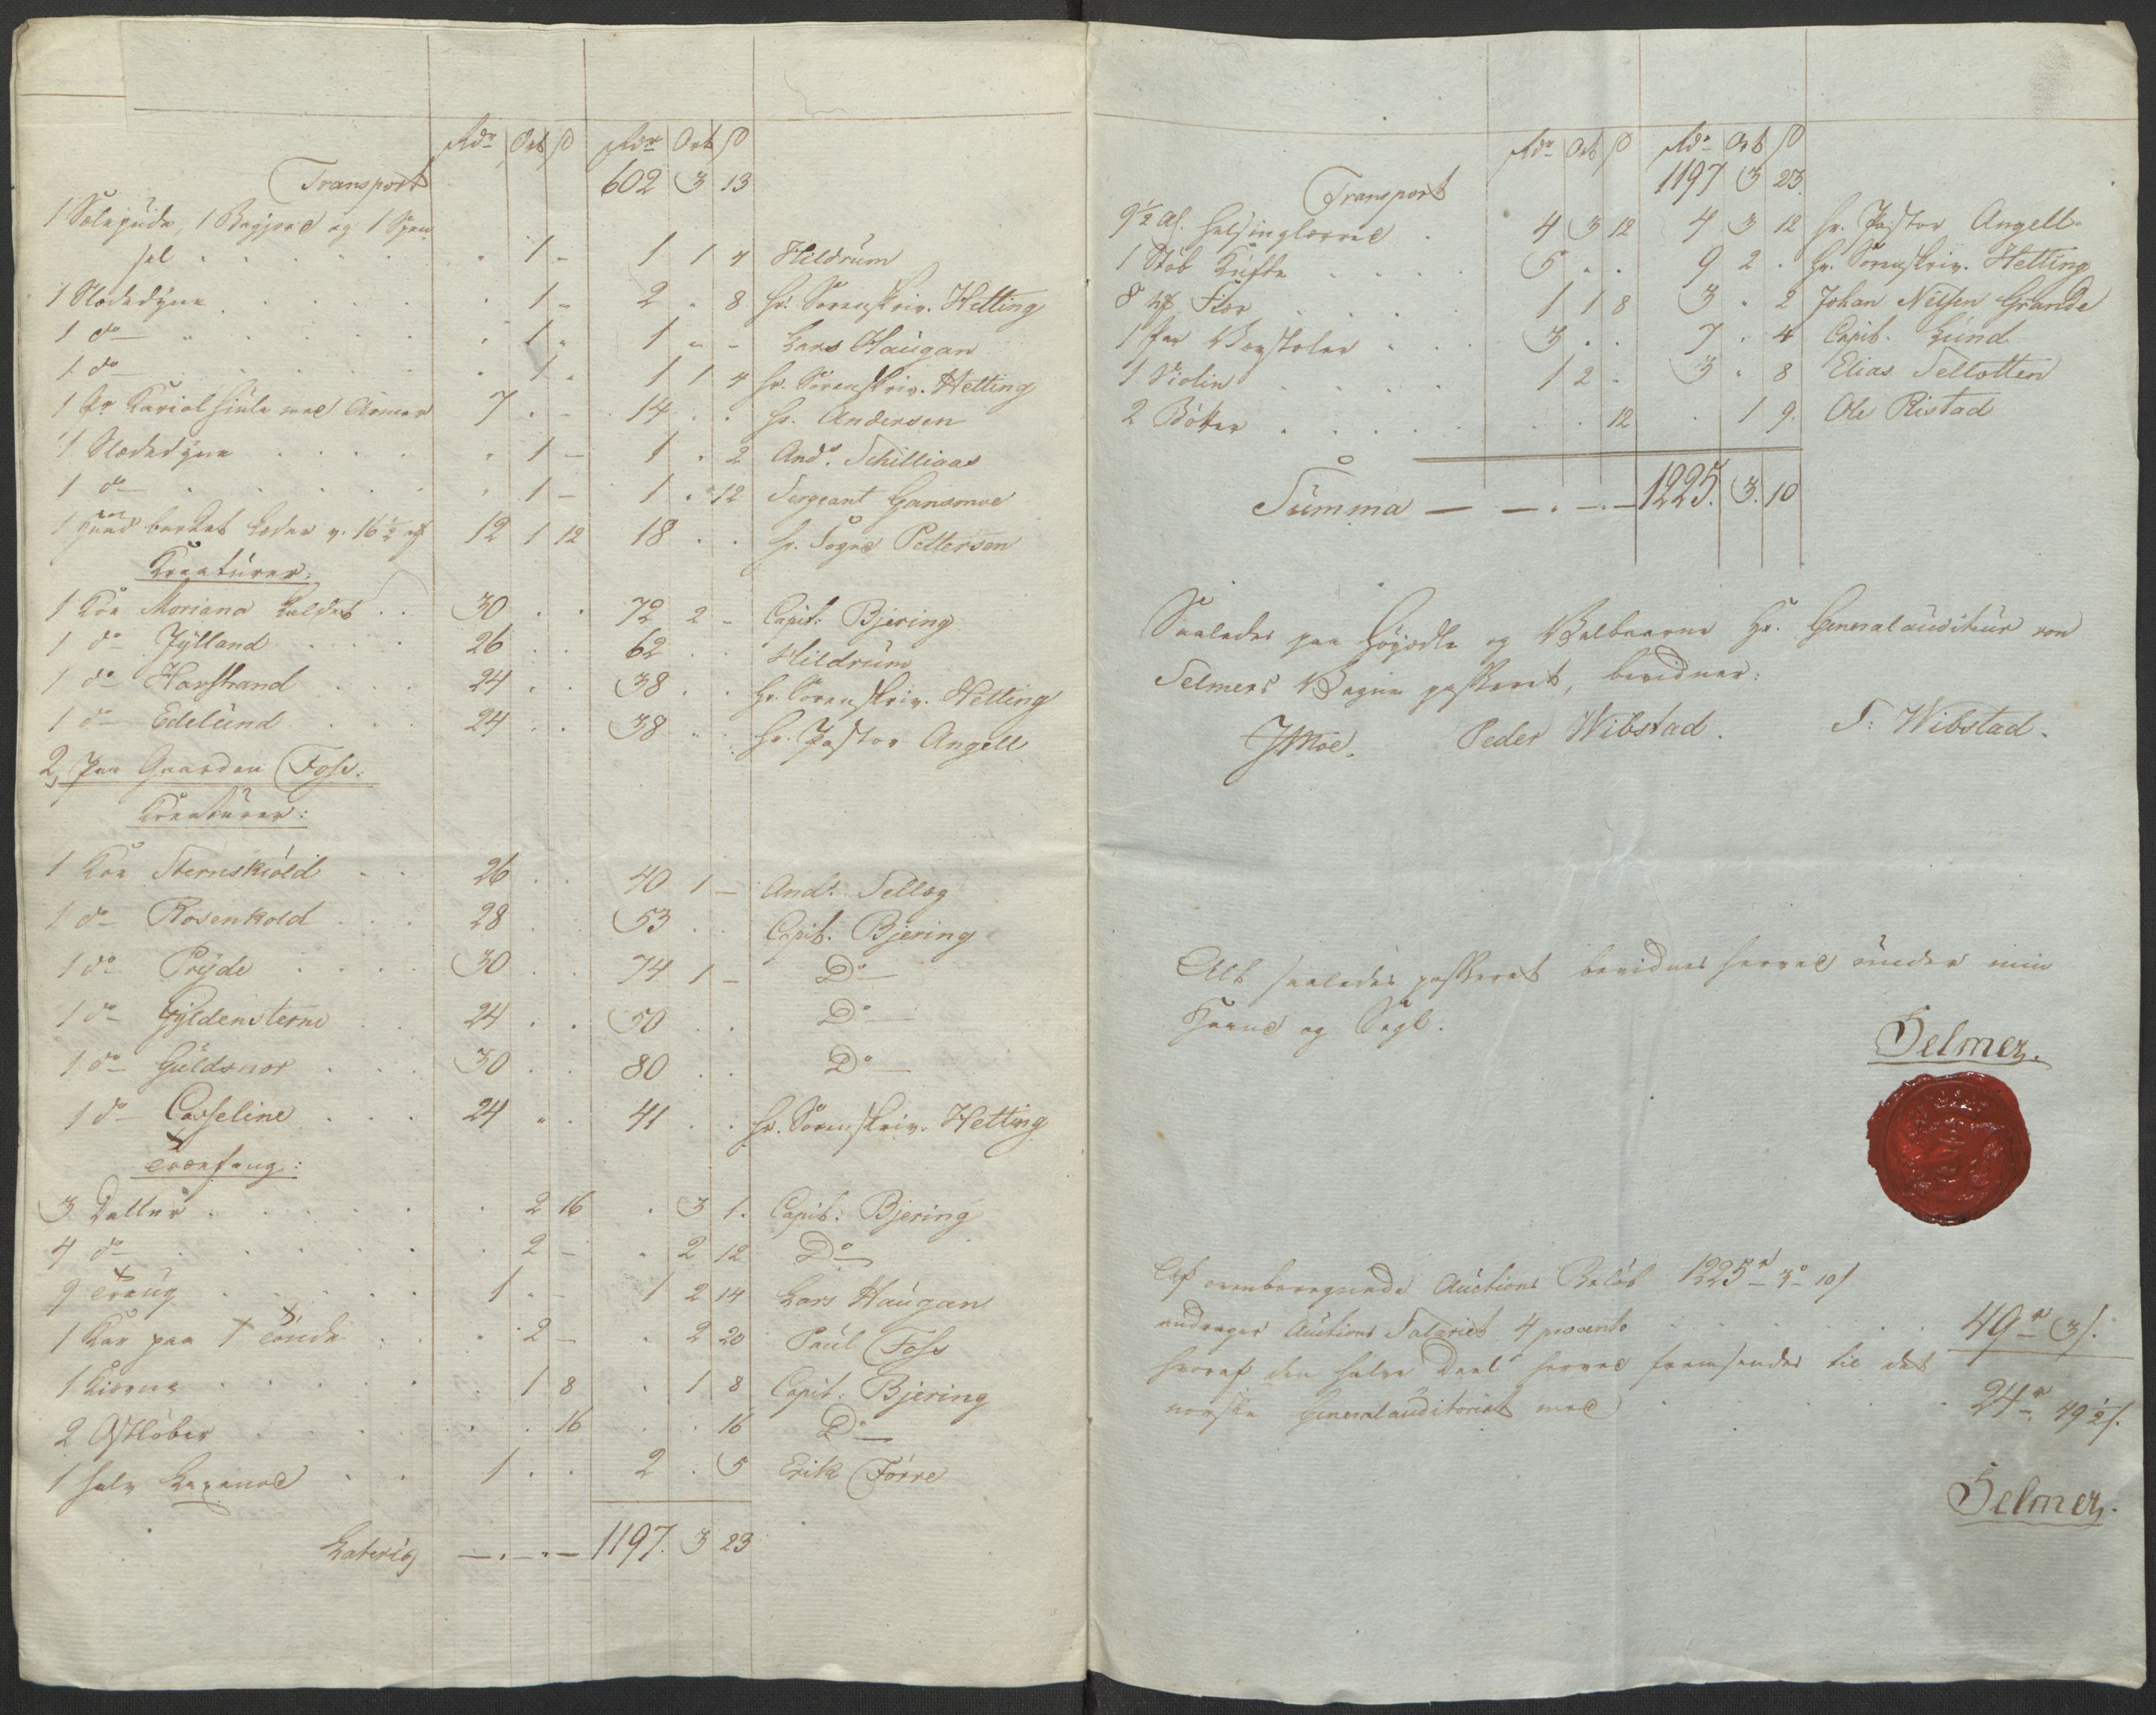 Rdr Ort ß Rdr Ort ß
Transport 602 3 13
1 Sælepude, 1 Bagjord og 1 Spen
sel . . . . . . 1 - 1 1 4 Hildrum
1 Slædedyne . . . . 1 - 2 . 8 Hr. Sorenskriv. Hetting
1 do . . . . . . 1 . 1 . - Lars Haugan
1 do . . . . . . 1 . 1 1 4 Hr. Sorenskriv. Hetting
1 Pr Kariolhiule med Armer 7 . - 14 . . Hr. Andersen
1 Slædedyne . . . . 1 - 1 . 2 Ands. Schilliaas
1 do . . . . . . 1 - 1 . 12 Sergeant Gansmoe
1 barket Læder v. 16½ 12 1 12 18 . . Hr. Pettersen
Kreaturer:
1 Koe Moriana kaldet . . 30 . . 72 2 - Capit: Bjering
1 do Jylland . . . . 26 . . 62 . . Hildrum
1 do Havstrand . . . 24 . . 38 . . Hr. Sorenskriv. Hetting
1 do Edelund . . . 24 . . 38 . . Hr. Pastor Angell
2, Paa Gaarden Foss:
Kreaturer:
1 Koe Sternskiold . . 26 . . 40 1 - Ands. Selløg
1 do Rosenkold . . . 28 . . 53 . . Capit. Bjering
1 do Pryde . . . . 30 . . 74 1 - Do
1 do Gyldensterne . . 24 . . 50 . . Do
1 do Guldsnor . . . 30 . . 80 . . Do
1 do Casseline . . . 24 . . 41 . . Hr. Sorenskriv. Hetting
Træefang:
3 Daller . . . . . . 2 16 . 3 1. Capit: Bjering
4 do . . . . . . 2 - . 2 12 Do
9 Traug . . . . . 1 . - 1 2 14 Lars Haugan
1 Kar paa 1 Tønde . . . 2 - . 2 20 Paul Foss
1 Kiærne . . . . . . 1 8 . 1 8 Capit: Bjering
2 Ostløber . . . . . . 16 . . 16 Do
1 halv . . 1 . . 2 . 5 Erik Førre
Lateris — . — . — 1197. 3 23
Rdr Ort ß Rdr Ort ß
Transport 1197 3 23.
9½ Al. Helsinglærred . 4 3 12 4 3 12 Hr. Pastor Angell
1 Støb Kufte . . . . 5 . . 9 2 . Hr. Sorenskriv. Hetting
8 Fler . . . . . 1 1 8 3 . 2 Johan Nilsen Grande
1 Par . . . 3 . . 7 . 4 Capit. Lund
1 Violin . . . . . 1 2 . 3 . 8 Elias Sellotten
2 Bøtter . . . . . . . 12 . 1 9. Ole Ristad
Summa — — . — . — 1225. 3. 10
Saaledes paa Høyædle og Velbaarne Hr. Generalauditeur von
Selmers Vegne passeret, bevidner:
JMoe. Peder Wibstad. S: Wibstad.
Alt saaledes passeret bevidnes herved under min
Haand og Segl.
Selmer.
Af ovenberegnede Auctions Beløb 1225r 3o 10ß
andrager Auctions Salariet 4 procento . . . . . . 49r 3ß.
hvoraf den halve Deel herved fremsendes til det
norske Generalauditoriat med . . . . . . 24r 49½ß.
Selmer.